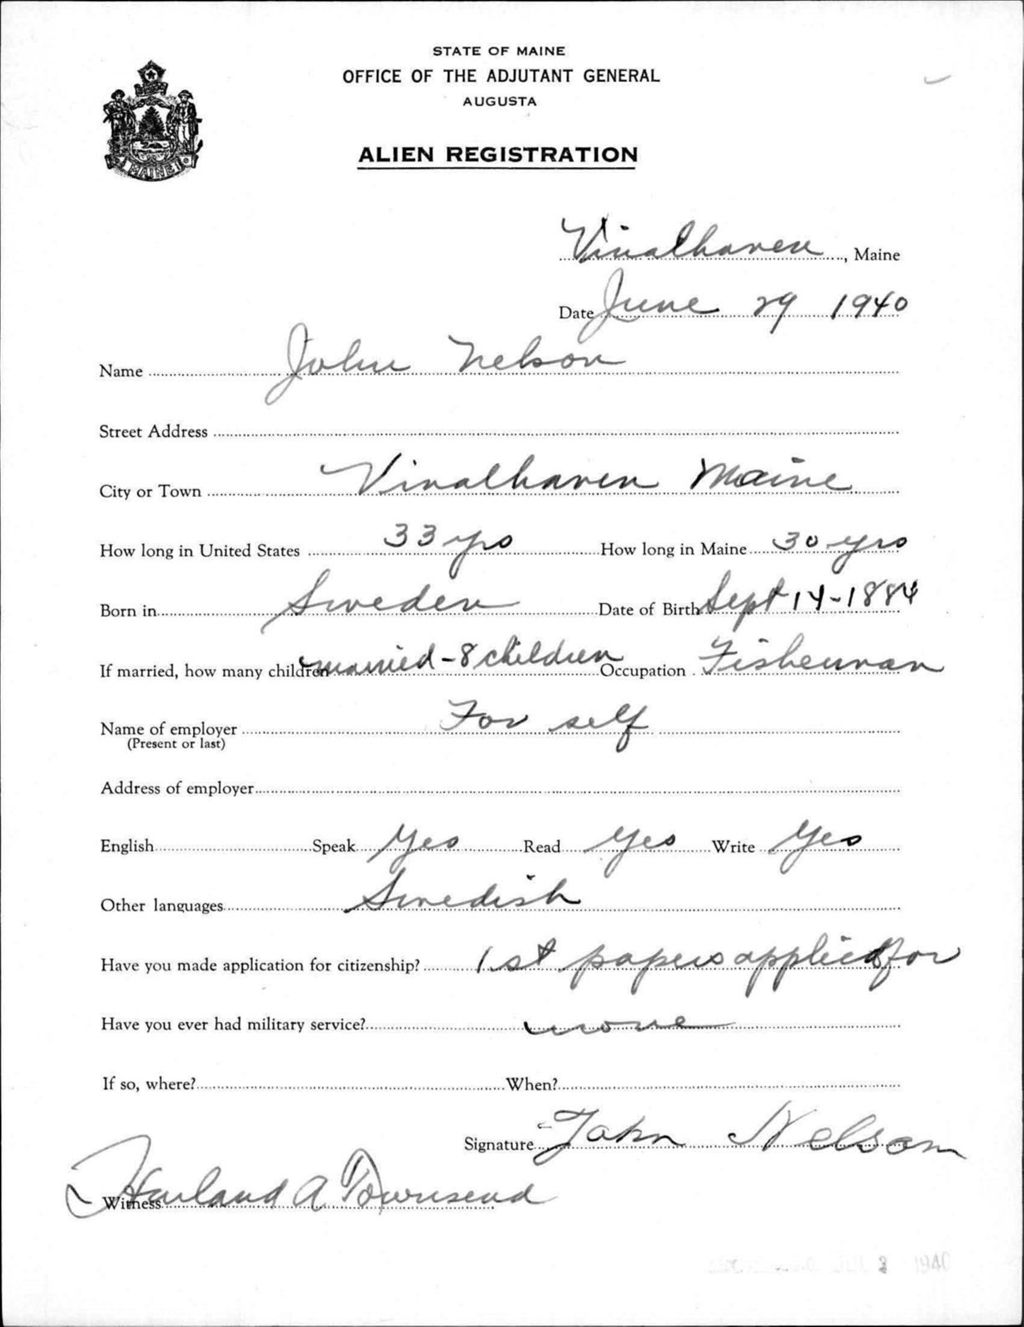 STATE OF MAINE
OFFICE OF THE ADJUTANT GENERAL
AUGUSTA
ALIEN REGISTRATION
MAINE
Vinalhaven, Maine
Date June 29 1940
Name John Nelson
Street Address
City or Town Vinalhaven Maine
How long in United States 33 yrs How long in Maine 30 yrs
Born in Sweden Date of Birth Sept 14-1884
If married, how many children married-8 children Occupation Fisherman
Name of employer For self
(Present or last)
Address of employer
English Speak Yes Read Yes Write Yes
Other languages Swedish
Have you made application for citizenship? 1st papers applied for
Have you ever had military service? none
If so, where? When?
Signature John Nelson
Witness Harland A. Townsend
JUL 3 1940